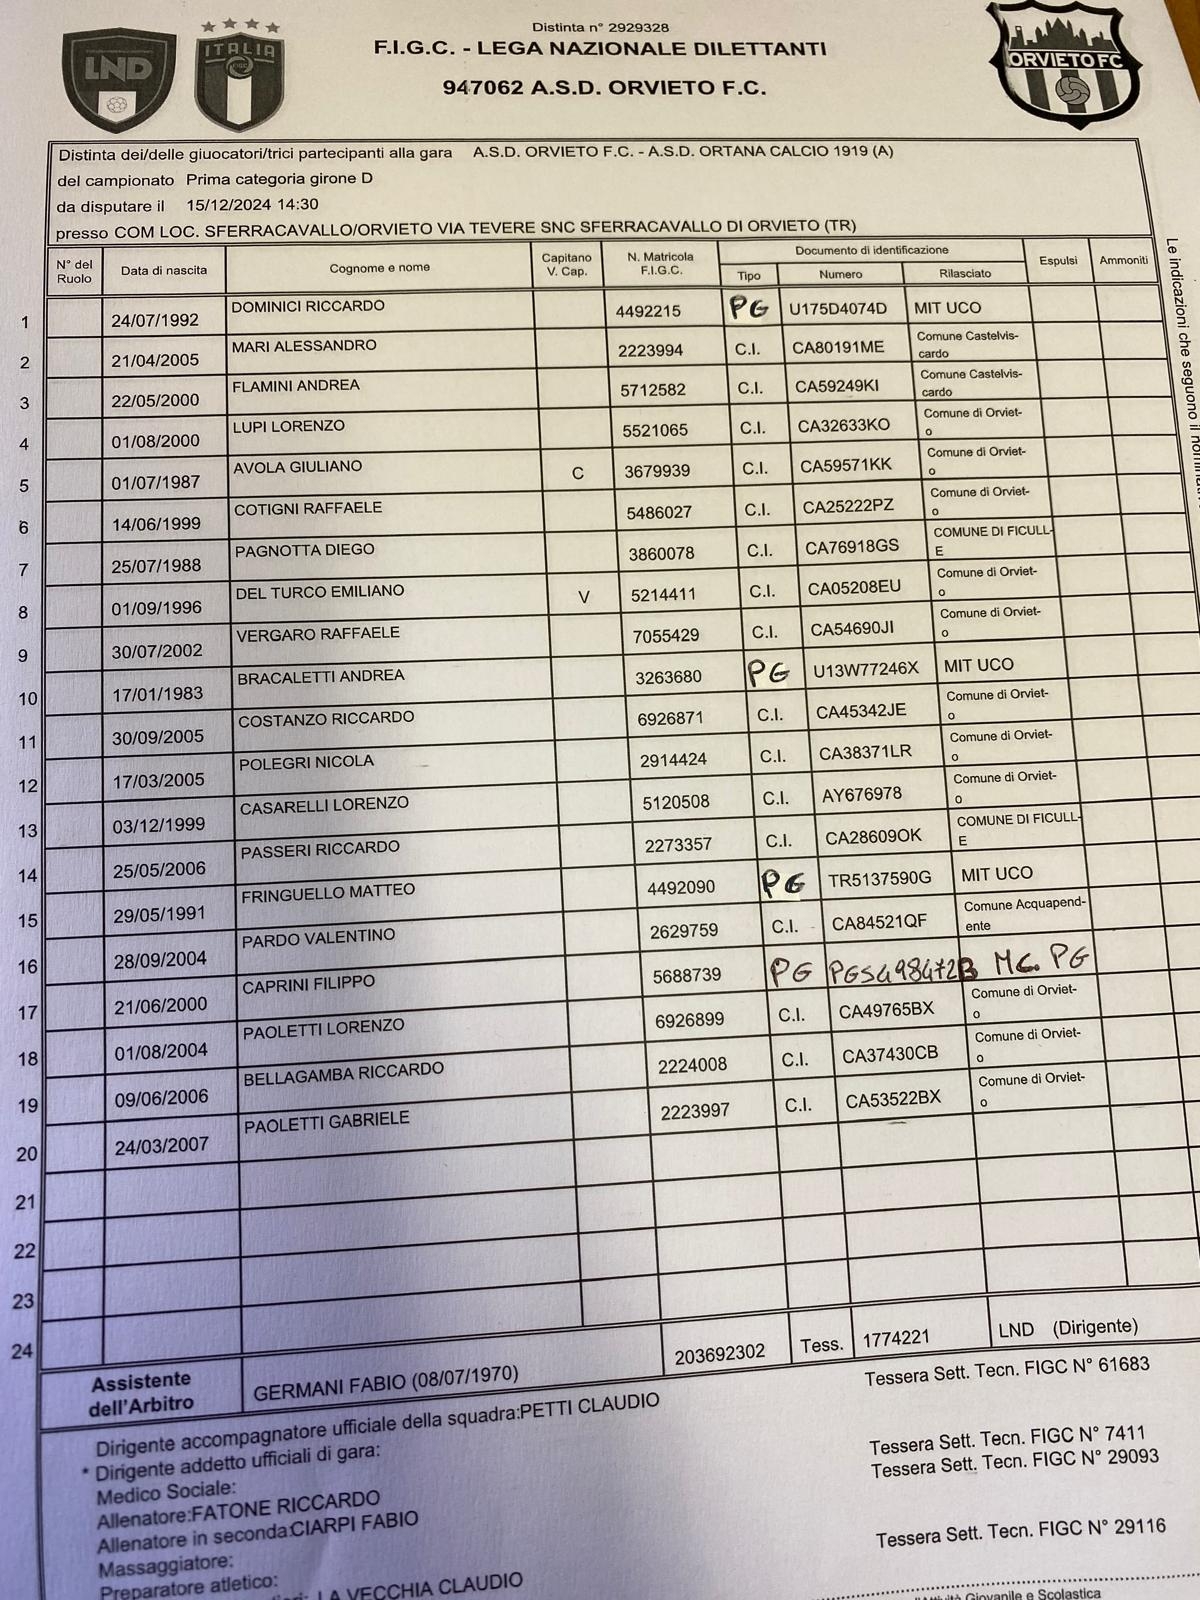 Distinta n° 2929328
F.I.G.C. - LEGA NAZIONALE DILETTANTI
947062 A.S.D. ORVIETO F.C.
LND
ITALIA
FIGC
ORVIETO FC
Distinta dei/delle giuocatori/trici partecipanti alla gara A.S.D. ORVIETO F.C. - A.S.D. ORTANA CALCIO 1919 (A)
del campionato Prima categoria girone D
da disputare il 15/12/2024 14:30
presso COM LOC. SFERRACAVALLO/ORVIETO VIA TEVERE SNC SFERRACAVALLO DI ORVIETO (TR)
N° del Ruolo Data di nascita Cognome e nome Capitano V. Cap. N. Matricola F.I.G.C. Documento di identificazione Espulsi Ammoniti
Tipo Numero Rilasciato
1 24/07/1992 DOMINICI RICCARDO 4492215 PG U175D4074D MIT UCO
2 21/04/2005 MARI ALESSANDRO 2223994 C.I. CA80191ME Comune Castelvis-cardo
3 22/05/2000 FLAMINI ANDREA 5712582 C.I. CA59249KI Comune Castelvis-cardo
4 01/08/2000 LUPI LORENZO 5521065 C.I. CA32633KO Comune di Orviet-o
5 01/07/1987 AVOLA GIULIANO C 3679939 C.I. CA59571KK Comune di Orviet-o
6 14/06/1999 COTIGNI RAFFAELE 5486027 C.I. CA25222PZ Comune di Orviet-o
7 25/07/1988 PAGNOTTA DIEGO 3860078 C.I. CA76918GS COMUNE DI FICULL-E
8 01/09/1996 DEL TURCO EMILIANO V 5214411 C.I. CA05208EU Comune di Orviet-o
9 30/07/2002 VERGARO RAFFAELE 7055429 C.I. CA54690JI Comune di Orviet-o
10 17/01/1983 BRACALETTI ANDREA 3263680 PG U13W77246X MIT UCO
11 30/09/2005 COSTANZO RICCARDO 6926871 C.I. CA45342JE Comune di Orviet-o
12 17/03/2005 POLEGRI NICOLA 2914424 C.I. CA38371LR Comune di Orviet-o
13 03/12/1999 CASARELLI LORENZO 5120508 C.I. AY676978 Comune di Orviet-o
14 25/05/2006 PASSERI RICCARDO 2273357 C.I. CA28609OK COMUNE DI FICULL-E
15 29/05/1991 FRINGUELLO MATTEO 4492090 PG TR5137590G MIT UCO
16 28/09/2004 PARDO VALENTINO 2629759 C.I. CA84521QF Comune Acquapend-ente
17 21/06/2000 CAPRINI FILIPPO 5688739 PG PG5498472B MC. PG
18 01/08/2004 PAOLETTI LORENZO 6926899 C.I. CA49765BX Comune di Orviet-o
19 09/06/2006 BELLAGAMBA RICCARDO 2224008 C.I. CA37430CB Comune di Orviet-o
20 24/03/2007 PAOLETTI GABRIELE 2223997 C.I. CA53522BX Comune di Orviet-o
21
22
23
24
Assistente dell'Arbitro GERMANI FABIO (08/07/1970) 203692302 Tess. 1774221 LND (Dirigente)
Dirigente accompagnatore ufficiale della squadra:PETTI CLAUDIO Tessera Sett. Tecn. FIGC N° 61683
* Dirigente addetto ufficiali di gara:
Medico Sociale: Tessera Sett. Tecn. FIGC N° 7411
Allenatore:FATONE RICCARDO Tessera Sett. Tecn. FIGC N° 29093
Allenatore in seconda:CIARPI FABIO
Massaggiatore: Tessera Sett. Tecn. FIGC N° 29116
Preparatore atletico:
LA VECCHIA CLAUDIO
Giovanile e Scolastica
Le indicazioni che seguono il